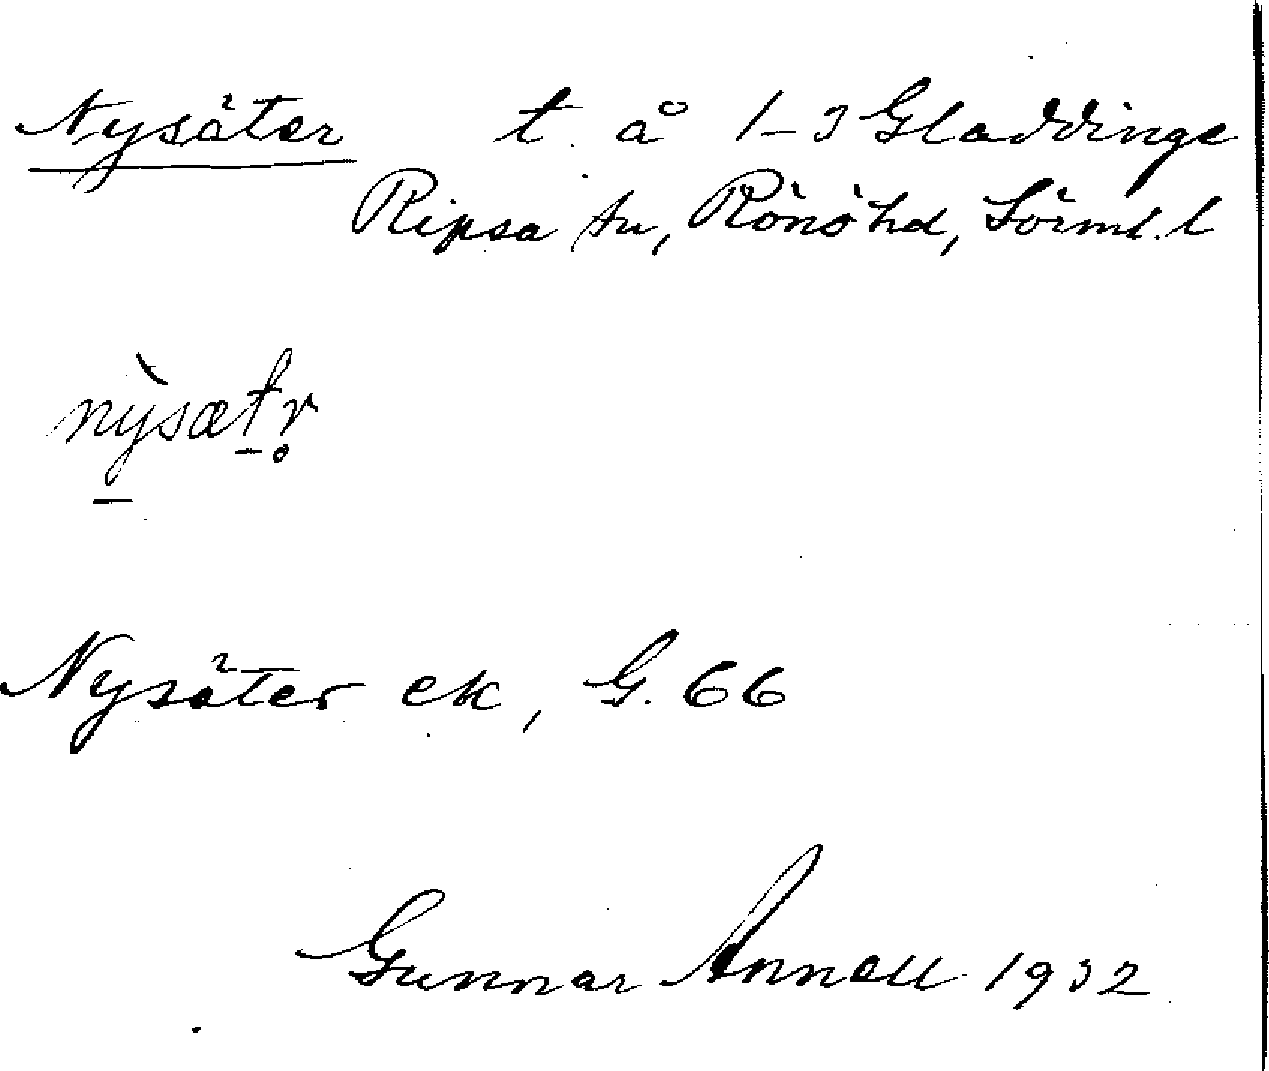 Nysäter t. å 1-3 Gladdinge
Ripsa sn, Rönö hd, Sörml. l
nỳsætr̥
Nysäter ek, G. 66
Gunnar Annell 1932